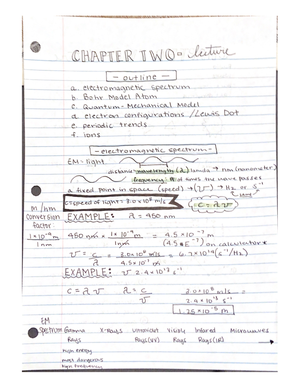 CHAPTER TWO: lecture
- outline -
a. electromagnetic spectrum
b. Bohr Model Atom
c. Quantum-Mechanical Model
d. electron configurations / Lewis Dot
e. periodic trends
f. ions
- electromagnetic spectrum -
EM-light
distance = wavelength (λ) lamda → nm (nanometer)
frequency: # of times the wave passes
a fixed point in space (speed) → (v) → Hz or s⁻¹
c = speed of light = 3.0×10⁸ m/s
c = λv
m/nm
conversion
factor
1×10⁻⁹m
1nm
EXAMPLE: λ = 450 nm
450 nm × 1×10⁻⁹ m = 4.5×10⁻⁷ m
1nm (4.5 E⁻⁷) on calculator
v = c = 3.0×10⁸ m/s = 6.7×10¹⁴ (s⁻¹/Hz)
λ 4.5×10⁻⁷ m
EXAMPLE: v 2.4×10¹³ s⁻¹
c = λv λ = c 3.0×10⁸ m/s =
v 2.4×10¹³ s⁻¹
1.25×10⁻⁵ m
EM
spectrum Gamma X-Rays Ultraviolet Visible Infared Microwaves
Rays Rays(UV) Rays Rays(IR)
high energy
most dangerous
high frequency